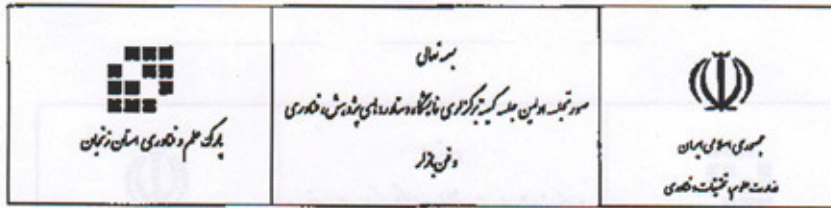 جمهوری اسلامی ایران
وزارت علوم، تحقیقات و فناوری
بسمه تعالی
صورتجلسه اولین جلسه کمیته برگزاری نمایشگاه دستاوردهای پژوهش، فناوری
و فن بازار
پارک علم و فناوری استان زنجان